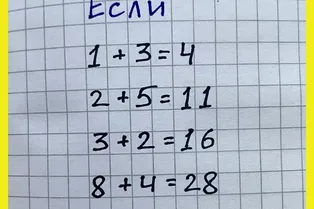 Если
1 + 3 = 4
2 + 5 = 11
3 + 2 = 16
8 + 4 = 28